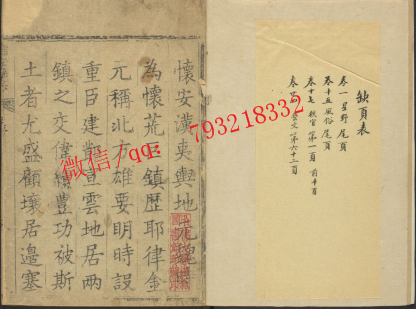 缺頁表
卷一 星野 尾頁
卷十五 風俗 尾頁
卷十七 秩官 第一頁 前半頁
藝文 第六十二頁
懷安漢夷輿地
為懷荒鎮歷耶律金
元稱北方雄要明時設
重臣建宣雲地居兩
鎮之交偉績豐功被斯
土者尤盛顧壤居邊塞
微信/qq: 793218332